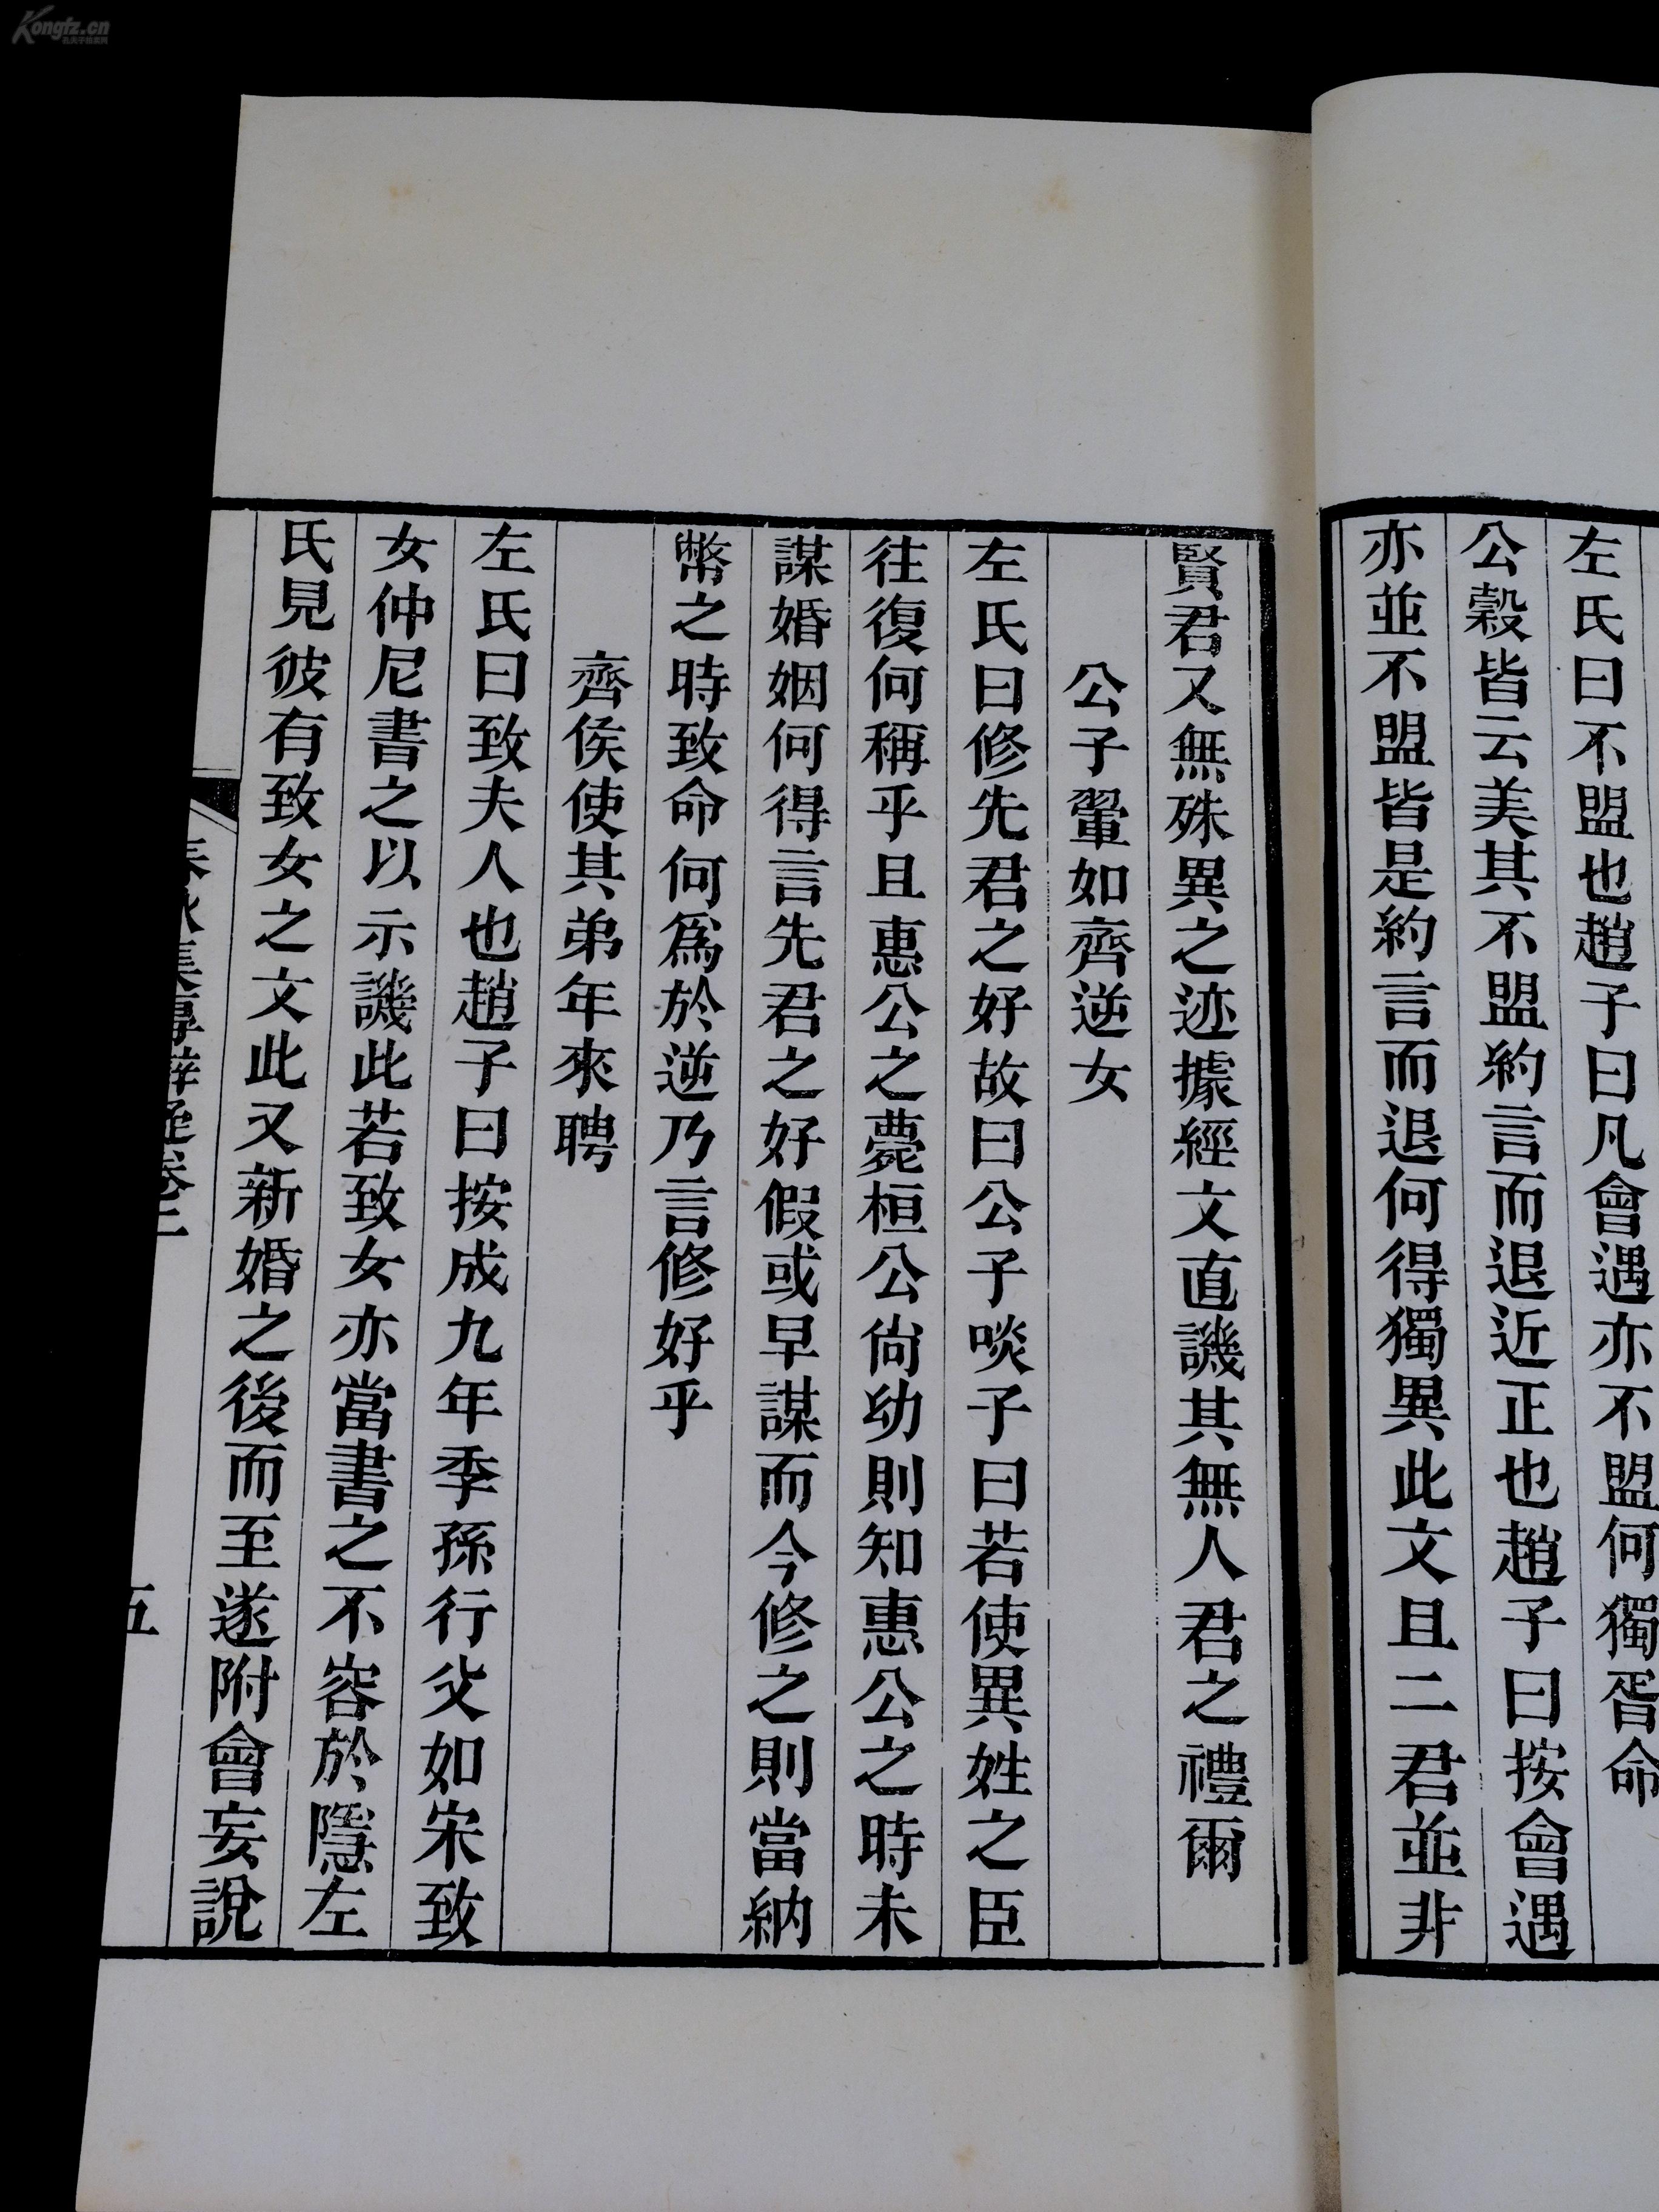 Kongfz.cn
左氏曰不盟也趙子曰凡會遇亦不盟何獨胥命
公穀皆云美其不盟約言而退近正也趙子曰按會遇
亦並不盟皆是約言而退何得獨異此文且二君並非
賢君又無殊異之迹據經文直譏其無人君之禮爾
公子翬如齊逆女
左氏曰修先君之好故曰公子啖子曰若使異姓之臣
往復何稱乎且惠公之薨桓公尙幼則知惠公之時未
謀婚姻何得言先君之好假或早謀而今修之則當納
幣之時致命何爲於逆乃言修好乎
齊侯使其弟年來聘
左氏曰致夫人也趙子曰按成九年季孫行父如宋致
女仲尼書之以示譏此若致女亦當書之不容於隱左
氏見彼有致女之文此又新婚之後而至遂附會妄說
春秋集傳辯疑卷二
五